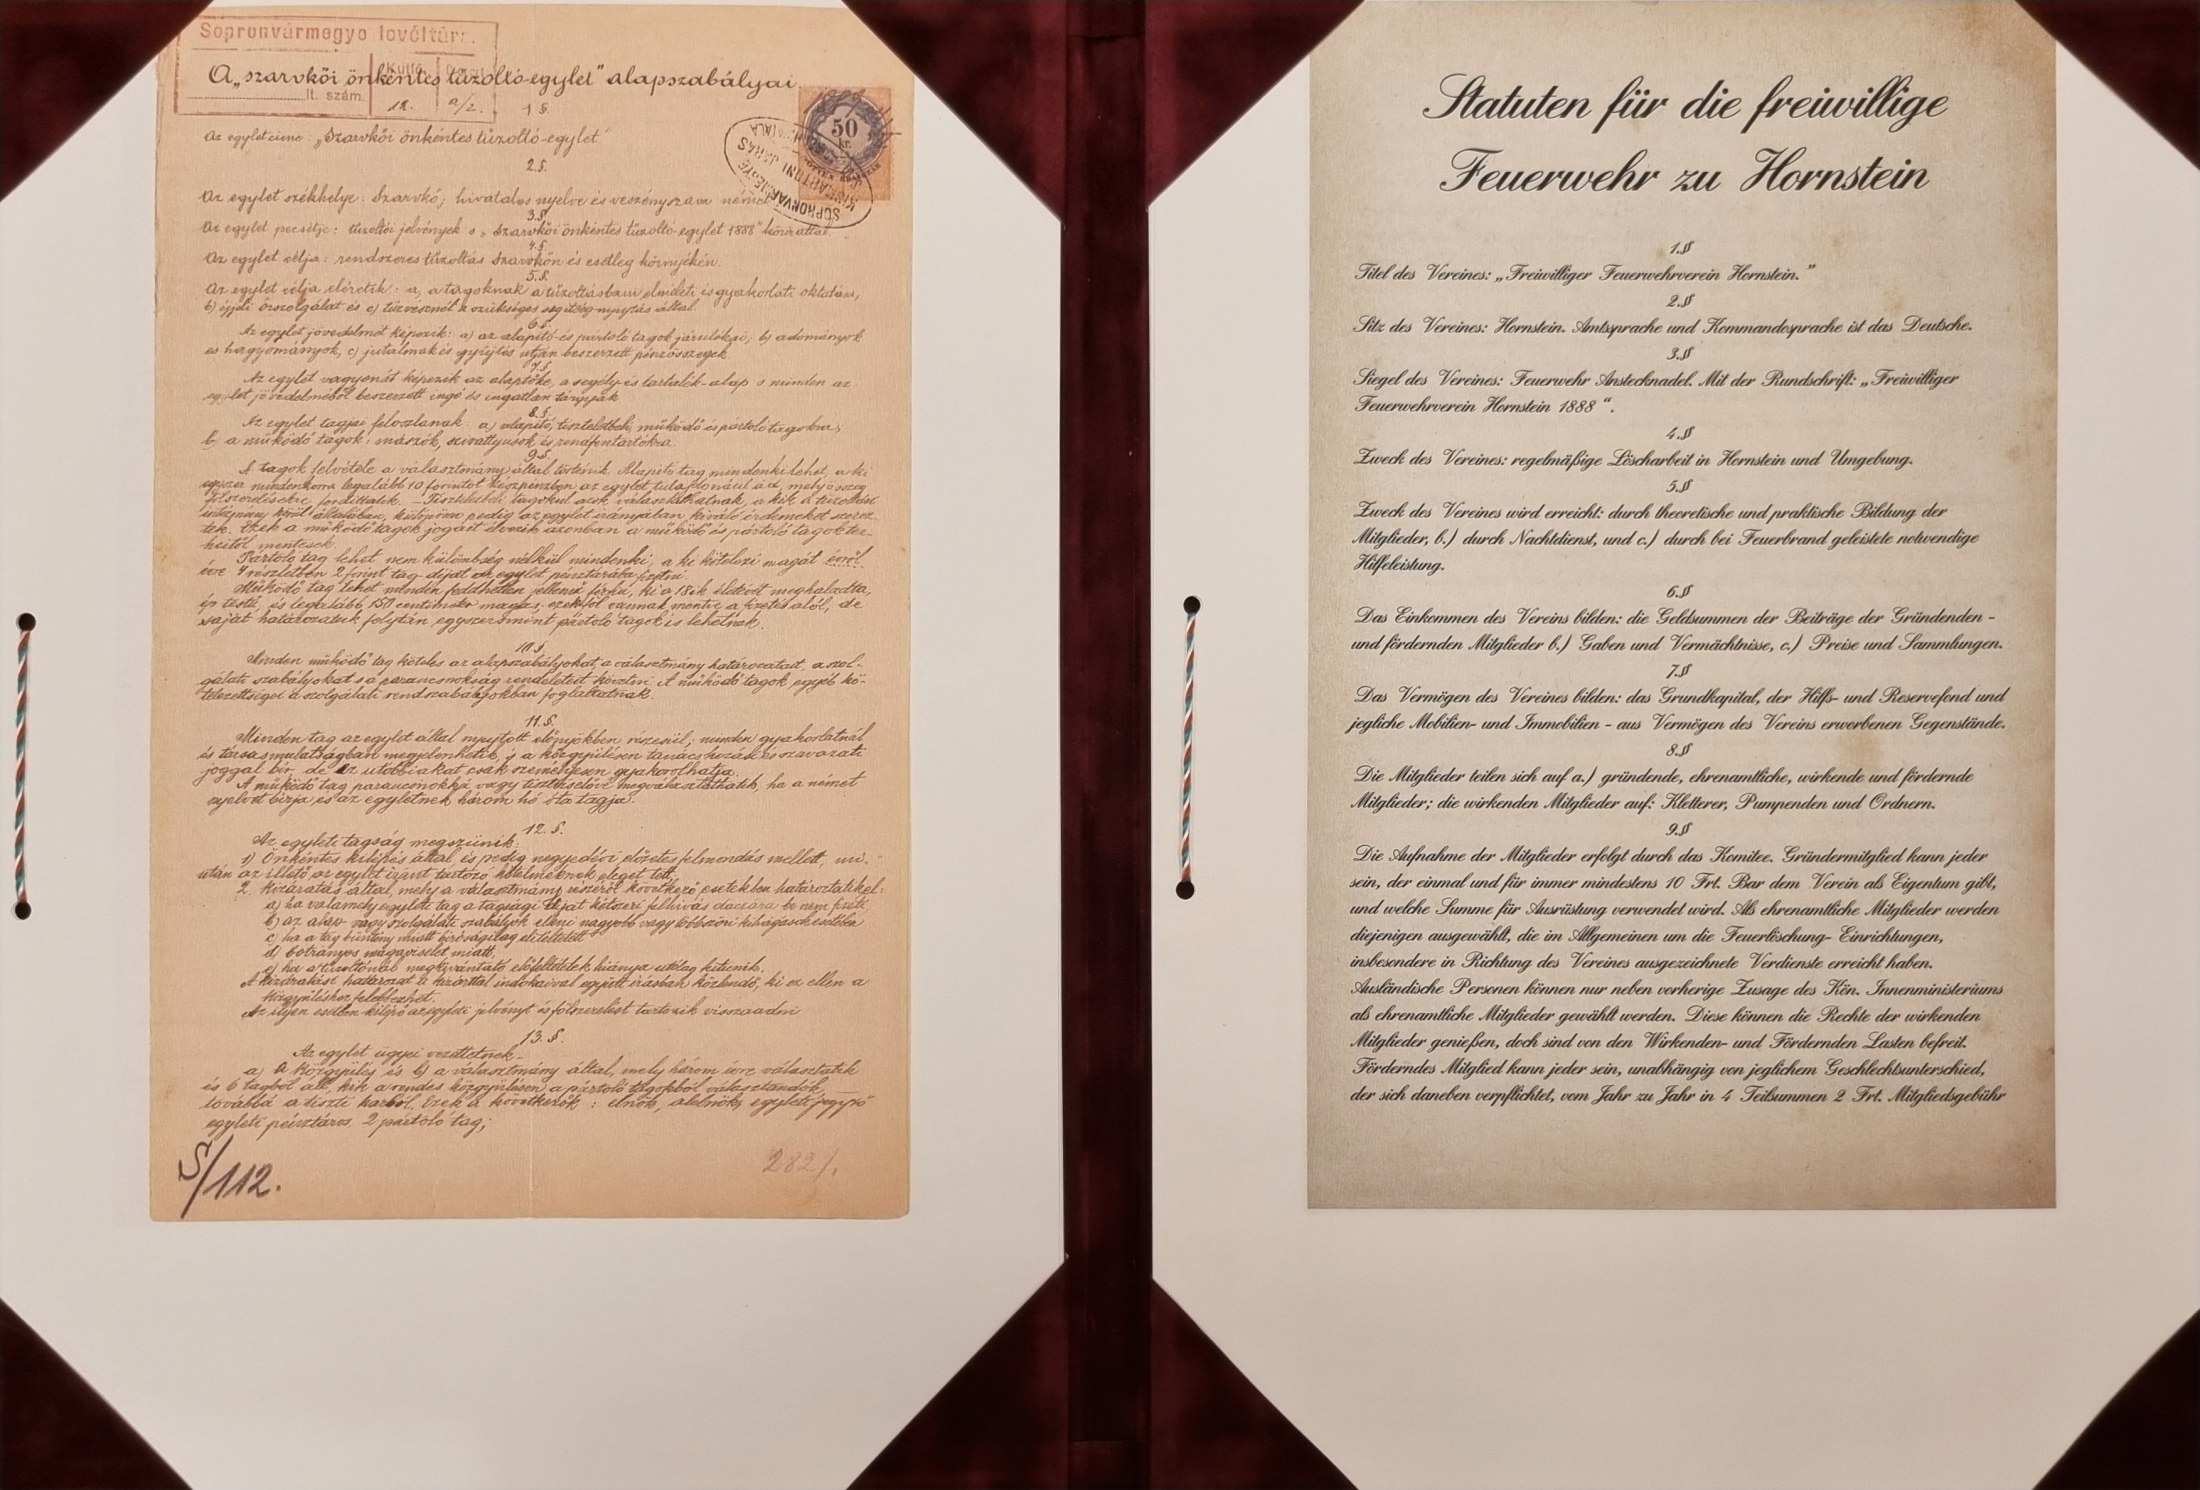 Sopronvármegye levéltára.
lt. szám.
12.
a/2.
A „szarvkői önkéntes tűzoltó-egylet" alapszabályai
50
kr.
SOPRONVÁRMEGYE
KISMARTONI JÁRÁS
1 §.
Az egylet címe: „Szarvkői önkéntes tűzoltó-egylet"
2.§.
Az egylet székhelye: Szarvkő; hivatalos nyelve és vezényszava német
3.§.
Az egylet pecsétje: tűzoltói jelvények s „Szarvkői önkéntes tűzoltó-egylet 1888" körirattal.
4.§.
Az egylet célja: rendszeres tűzoltás Szarvkőn és esetleg környékén.
5.§.
Az egylet célja eléretik: a, a tagoknak a tűzoltásbani elméleti és gyakorlati oktatása,
b) éjjeli őrszolgálat és c) tűzvésznél a szükséges segítség-nyujtás által.
6.§.
Az egylet jövedelmét képezik: a) az alapító- és pártoló tagok járulékai; b) adományok
és hagyományok, c) jutalmak és gyűjtés útján beszerzett pénzösszegek
7.§.
Az egylet vagyonát képezik az alaptőke, a segély- és tartalék-alap s minden az
egylet jövedelméből beszerzett ingó és ingatlan tárgyak
8.§.
Az egylet tagjai feloszlanak: a) alapító, tiszteletbeli, működő és pártoló tagokra;
b, a működő tagok: mászók, szivattyusok, és rendfentartókra.
9.§.
A tagok felvétele a választmány által történik. Alapító tag mindenki lehet, a ki
egyszer mindenkorra legalább 10 forintot készpénzben az egylet tulajdonául ád, mely összeg
fölszerelésekre fordíttatik. – Tiszteletbeli tagokul azok választathatnak, a kik a tűzoltási
intézmény körül általában, különösen pedig az egylet irányában kiváló érdemeket szerez-
tek. Ezek a működő tagok jogait élvezik azonban a működő és pártoló tagok ter-
heitől mentesek.
Pártoló tag lehet nem külömbség nélkül mindenki, a ki kötelezi magát évről
évre 4 részletben 2 forint tag-díjat az egylet pénztárába fizetni.
Működő tag lehet minden feddhetlen jellemű férfiu, ki a 18ik életévét meghaladta,
ép testű, és legalább 150 centimeter magas; ezek föl vannak mentve a fizetés alól, de
saját határozatuk folytán egyszersmint pártoló tagok is lehetnek.
10.§.
Minden működő tag köteles az alapszabályokat, a választmány határozatait, a szol-
gálati szabályokat s a parancsnokság rendeleteit követni. A működő tagok egyéb kö-
telezettségei a szolgálati rendszabályokban foglaltatnak.
11.§.
Minden tag az egylet által nyujtott előnyökben részesül; minden gyakorlatnál
és társasmulatságban megjelenhetik, s a közgyülésen tanácskozási és szavazati
joggal bír, de ez utóbbiakat csak személyesen gyakorolhatja.
A működő tag parancsnokká vagy tisztviselővé megválasztathatik, ha a német
nyelvet birja és az egyletnek három hó óta tagja.
12. §.
Az egyleti tagság megszünik:
1) Önkéntes kilépés által, és pedig negyedévi előzetes felmondás mellett, mi-
után az illető az egylet iránt tartozó kötelmeinek eleget tett.
2. kizáratás által, mely a választmány részéről következő esetekben határoztatik el:
a) ha valamely egyleti tag a tagsági díját kétszeri felhívás daczára be nem fizeti
b) az alap- vagy szolgálati szabályok elleni nagyobb vagy többszöri kihágások esetében
c) ha a tag bűntény miatt biróságilag elitéltetett
d) botrányos magaviselet miatt,
e) ha a tűzoltónál megkivántató előfeltételek hiánya utólag kitünik.
A kizáratási határozat a kizárttal indokaival együtt írásban közlendő, ki ez ellen a
közgyüléshez felebbezhet.
Az ilyen esetben kilépő az egyleti jelvényt és fölszerelést tartozik visszaadni
13. §.
Az egylet ügyei vezettetnek –
a) A közgyülés és b) a választmány által, mely három évre választatik
és 6 tagból áll, kik a rendes közgyülésen a pártoló tagokból választandók,
továbbá a tiszti karból. Ezek a következők: elnök, alelnök, egyleti jegyző
egyleti pénztáros 2 pártoló tag;
S/112.
282/.
Statuten für die freiwillige
Feuerwehr zu Hornstein
1.§
Titel des Vereines: „Freiwilliger Feuerwehrverein Hornstein."
2.§
Sitz des Vereines: Hornstein. Amtssprache und Kommandosprache ist das Deutsche.
3.§
Siegel des Vereines: Feuerwehr Anstecknadel. Mit der Rundschrift: „Freiwilliger
Feuerwehrverein Hornstein 1888 ".
4.§
Zweck des Vereines: regelmäßige Löscharbeit in Hornstein und Umgebung.
5.§
Zweck des Vereines wird erreicht: durch theoretische und praktische Bildung der
Mitglieder, b.) durch Nachtdienst, und c.) durch bei Feuerbrand geleistete notwendige
Hilfeleistung.
6.§
Das Einkommen des Vereins bilden: die Geldsummen der Beiträge der Gründenden -
und fördernden Mitglieder b.) Gaben und Vermächtnisse, c.) Preise und Sammlungen.
7.§
Das Vermögen des Vereines bilden: das Grundkapital, der Hilfs- und Reservefond und
jegliche Mobilien- und Immobilien - aus Vermögen des Vereins erworbenen Gegenstände.
8.§
Die Mitglieder teilen sich auf a.) gründende, ehrenamtliche, wirkende und fördernde
Mitglieder; die wirkenden Mitglieder auf: Kletterer, Pumpenden und Ordnern.
9.§
Die Aufnahme der Mitglieder erfolgt durch das Komitee. Gründermitglied kann jeder
sein, der einmal und für immer mindestens 10 Frt. Bar dem Verein als Eigentum gibt,
und welche Summe für Ausrüstung verwendet wird. Als ehrenamtliche Mitglieder werden
diejenigen ausgewählt, die im Allgemeinen um die Feuerlöschung- Einrichtungen,
insbesondere in Richtung des Vereines ausgezeichnete Verdienste erreicht haben.
Ausländische Personen können nur neben vorherige Zusage des Kön. Innenministeriums
als ehrenamtliche Mitglieder gewählt werden. Diese können die Rechte der wirkenden
Mitglieder genießen, doch sind von den Wirkenden- und Fördernden Lasten befreit.
Förderndes Mitglied kann jeder sein, unabhängig von jeglichem Geschlechtsunterschied,
der sich daneben verpflichtet, vom Jahr zu Jahr in 4 Teilsummen 2 Frt. Mitgliedsgebühr